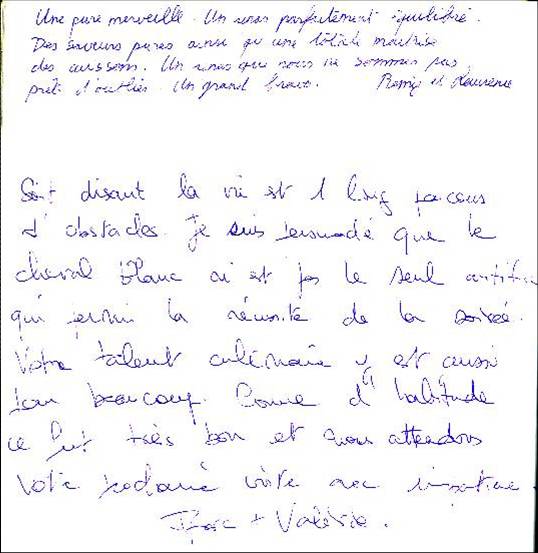 Une pure merveille. Un repas parfaitement équilibré.
Des saveurs pures ainsi qu'une totale maitrise
des cuissons. Un repas que nous ne sommes pas
prêt d'oublier. Un grand bravo. Rémy et Laurence
Soit disant la vie est 1 long parcours
d'obstacles. Je suis persuadé que le
cheval blanc n'est pas le seul
qui permi la réussite de la soirée.
Votre talent culinaire y est aussi
pour beaucoup. Comme d'habitude
ce fut très bon et nous attendons
votre prochaine visite avec impatience.
Marc + Valérie.